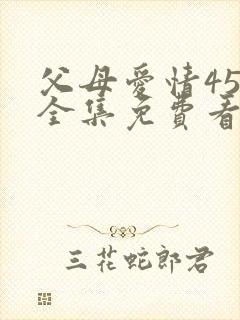 父母愛情45
全集免費看
三花蛇郎君